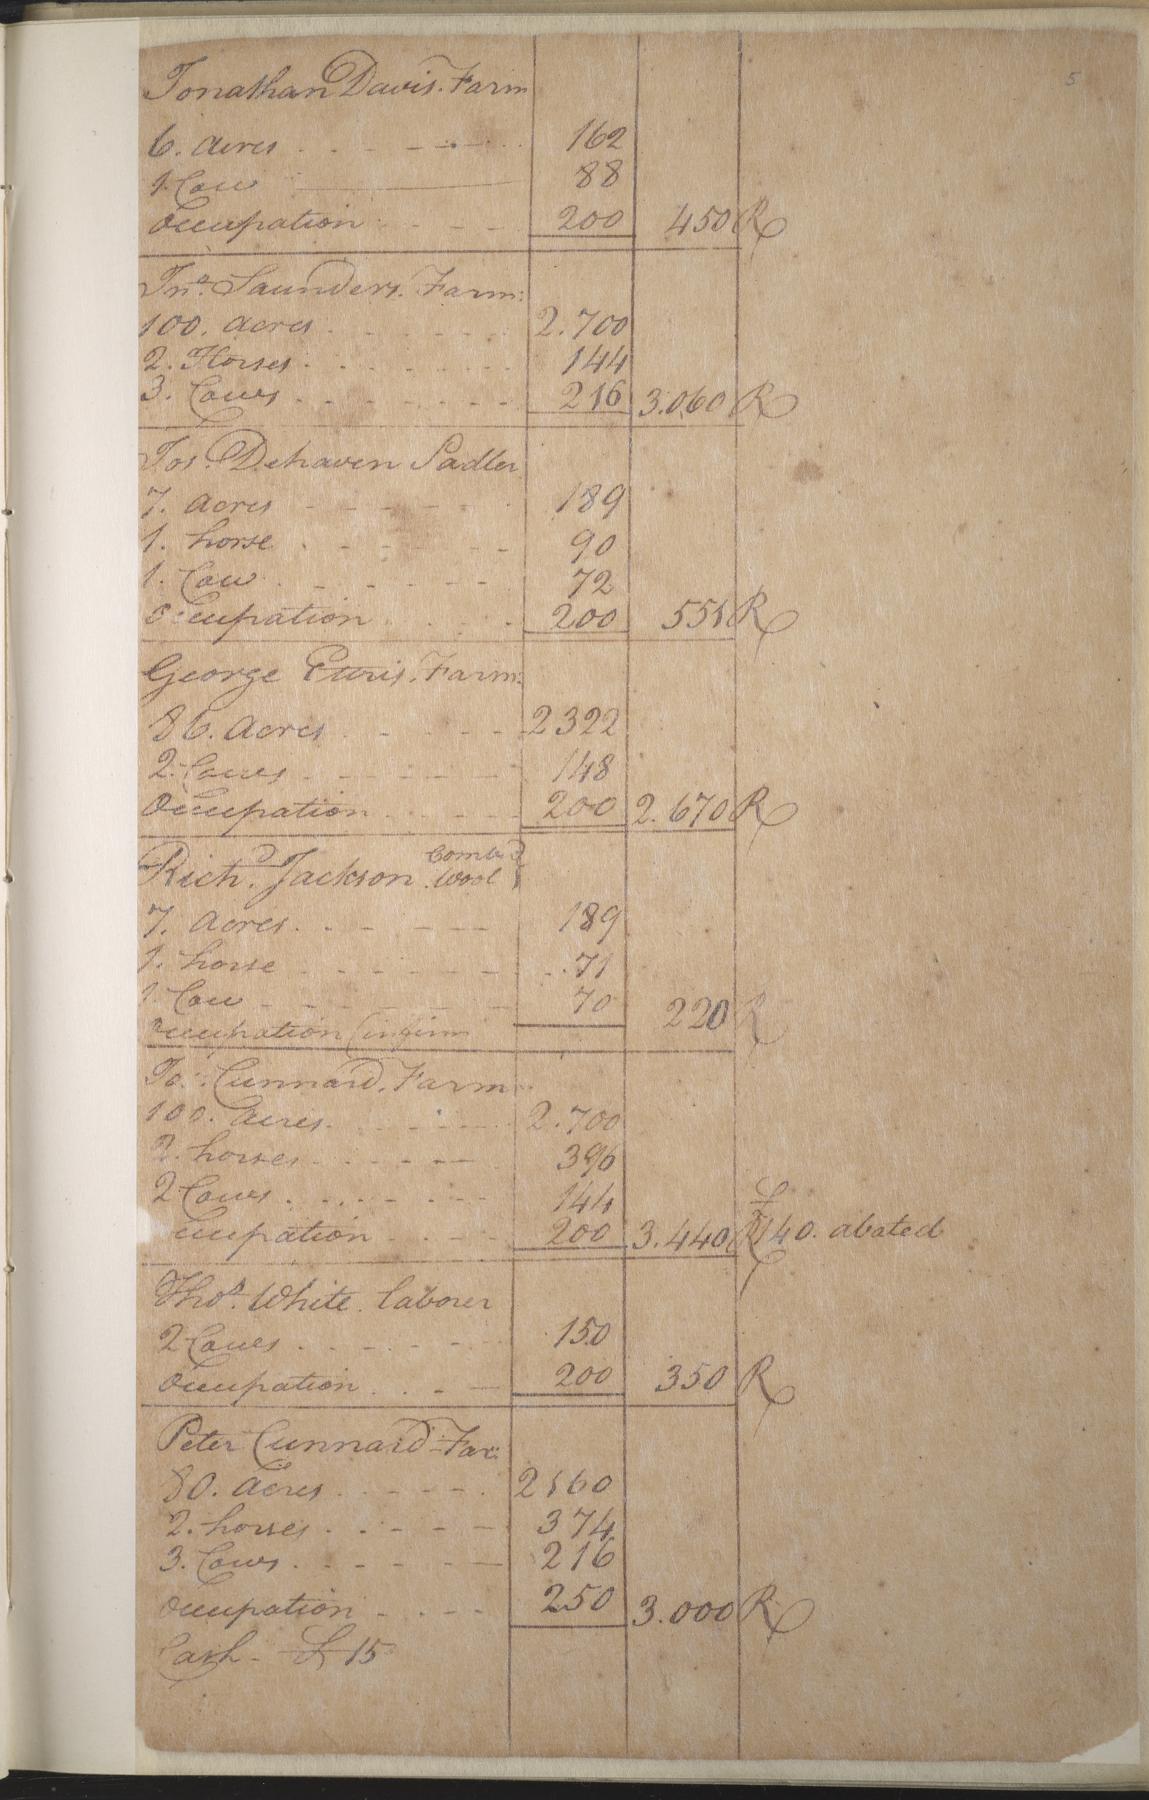 5
Jonathan Davis. Farm
6. Acres 162
1. Cow 88
Occupation 200 450 R
Jnº. Saunders. Farm:
100. Acres 2.700
2. Horses 144
3. Cows 216 3.060 R
Jos. Dehaven Sadler
7. Acres 189
1. horse 90
1. Cow 72
Occupation 200 551 R
George Farm:
86. Acres 2322
2. Cows 148
Occupation 200 2.670 R
Richd. Jackson Comb
Wool
7. Acres 189
1. horse 71
1. Cow 70 220 R
occupation (infirm
Jo: Cunnard. Farm
100. Acres 2.700
2. horses 396
2 Cows 144
£
cupation 200 3.440 R 140. abated
Thos. White. laborer
2 Cows 150
Occupation 200 350 R
Peter Cunnard Far:
80. Acres 2160
2. horses 374
3. Cows 216
Occupation 250 3.000 R
Cash - £ 15